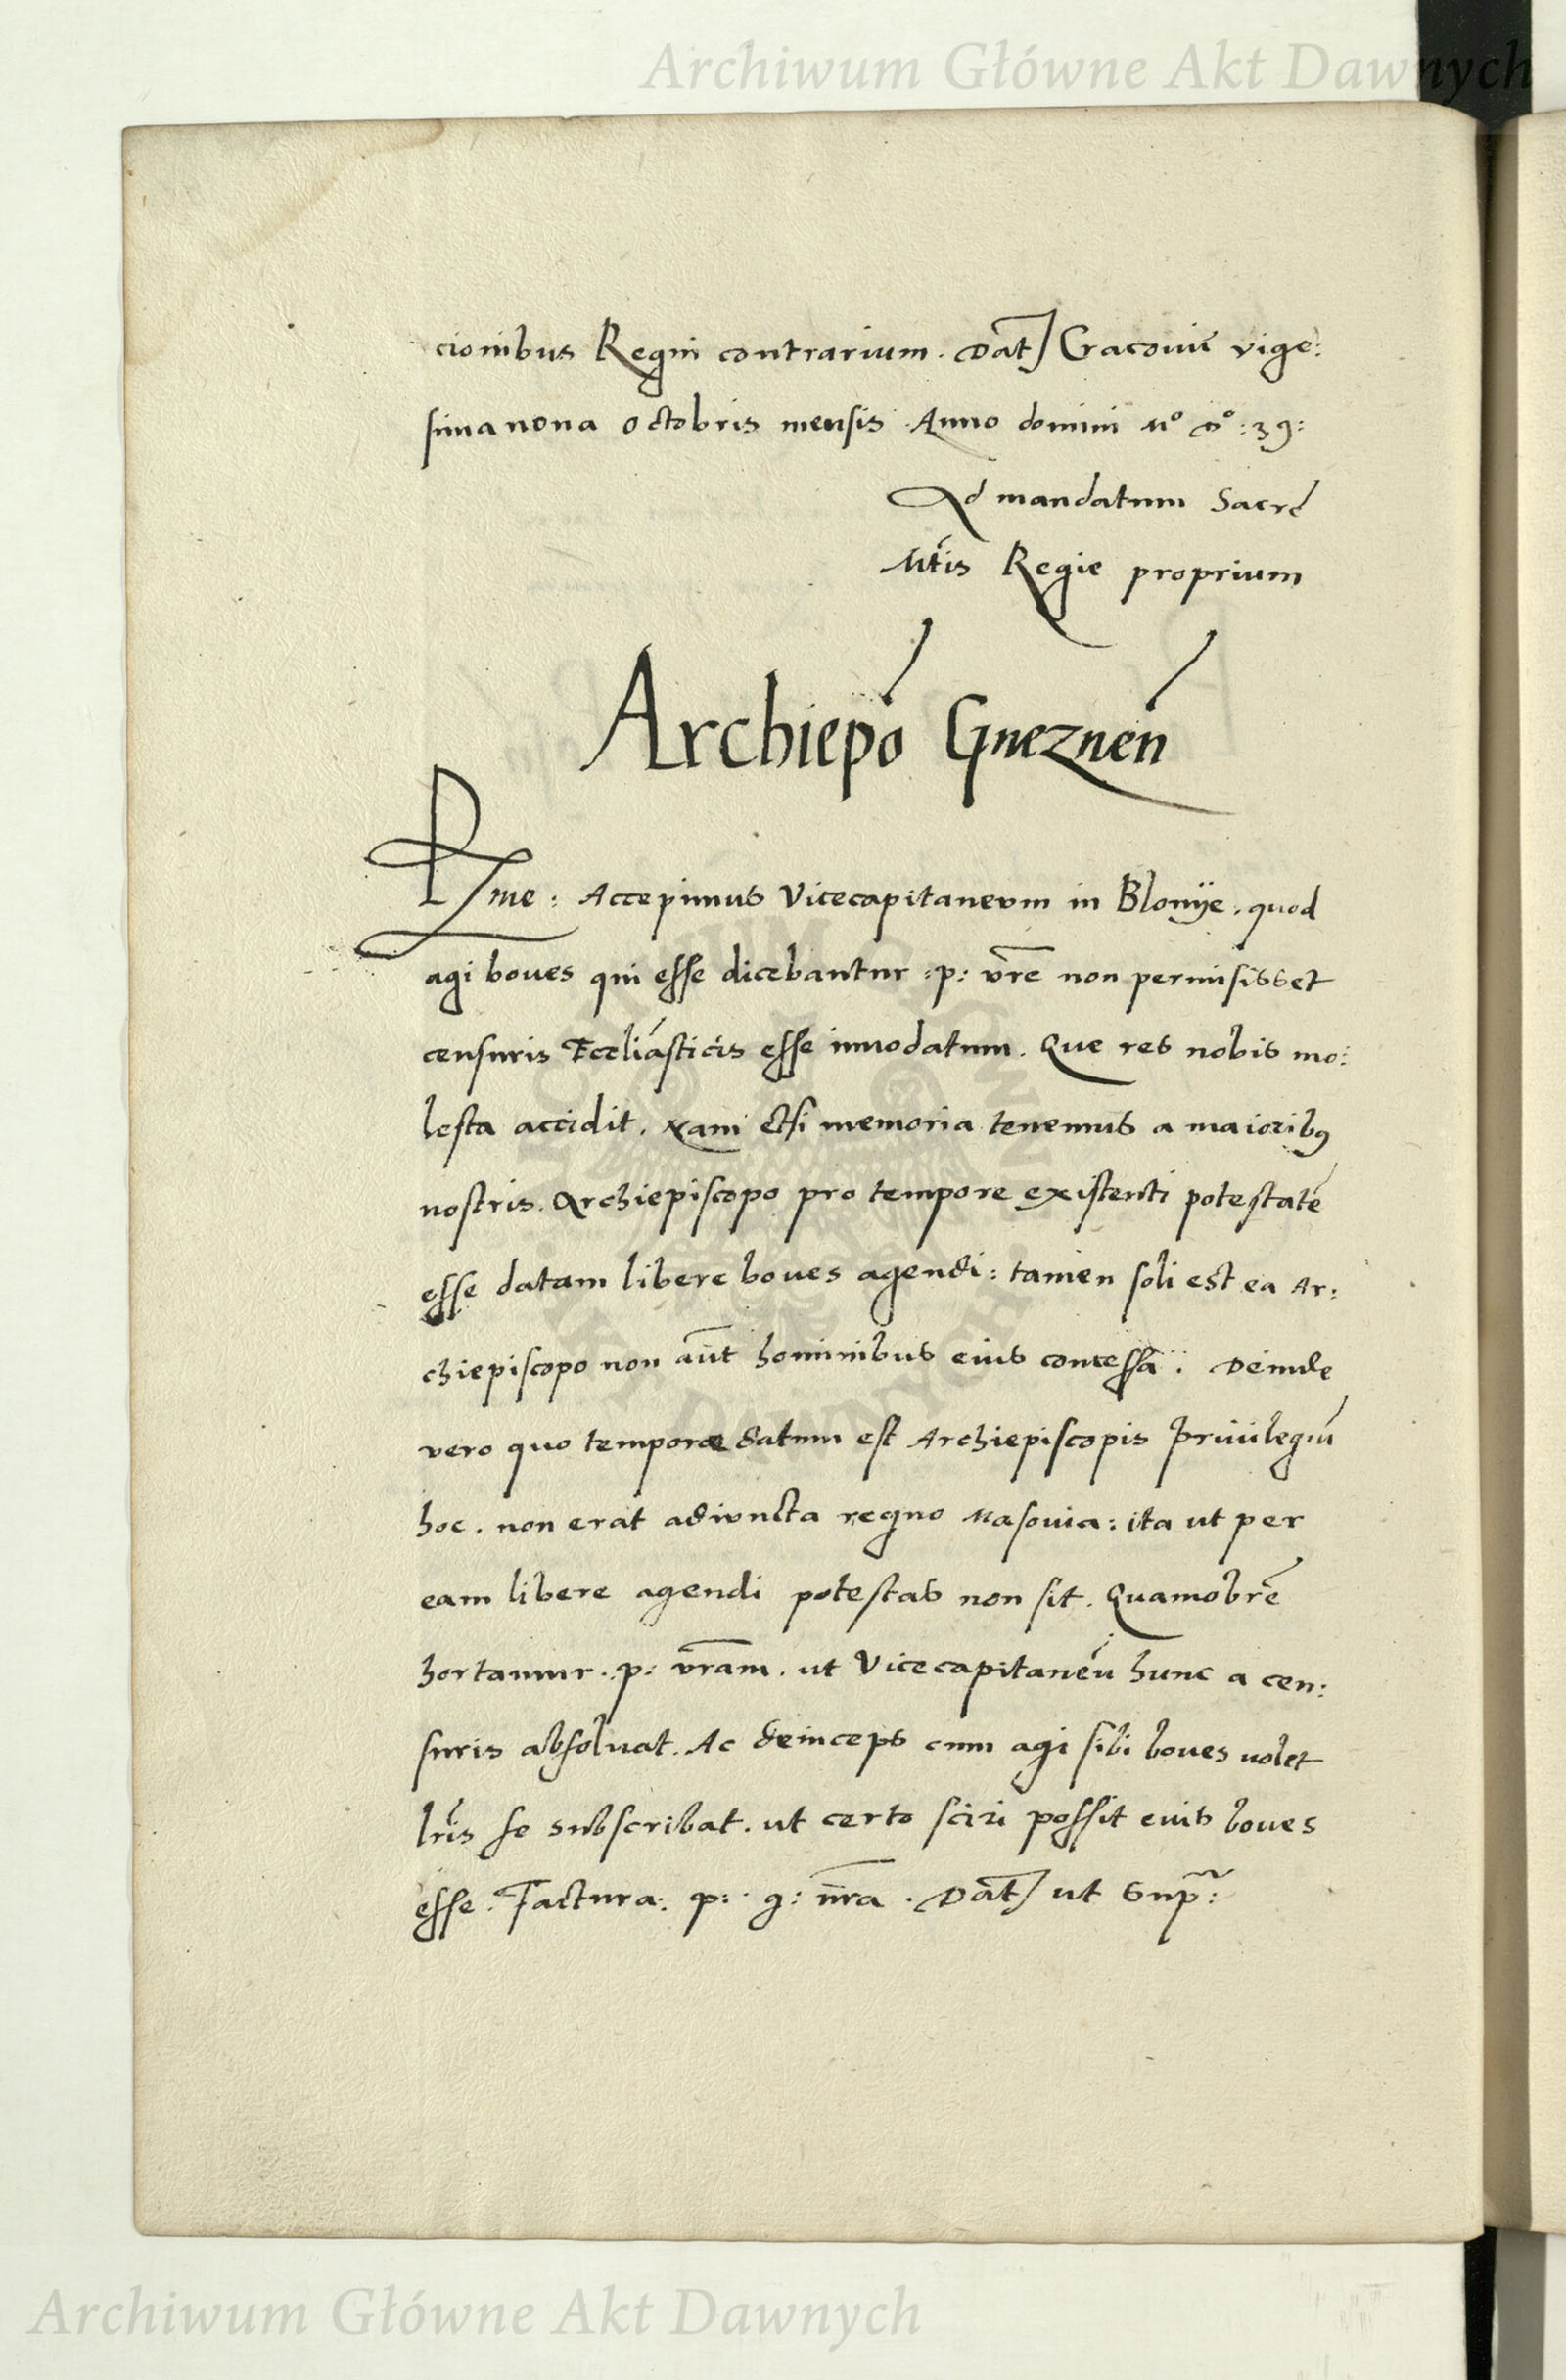 Archiwum Główne Akt Dawnych
cionibus Regni contrarium. Dat̃ Cracovię vige:
sima nona octobris mensis Anno domini Mº Dº :39:
Ad mandatum Sacrę
Mt̃is Regie proprium
Archiepõ Gneznen̄
Rme: Accepimus Vicecapitaneum in Blonÿe. quod
agi boues qui esse dicebantur :p: vr̃e non permisisset
censuris Eccliásticis esse innodatum. Que res nobis mo:
lesta accidit. Nam etsi memoria tenemus a maioribꝫ
nostris. Archiepiscopo pro tempore existenti potestatē
esse datam libere boues agendi: tamen soli est ea Ar:
chiepiscopo non aũt hominibus eius concessa. Deinde
vero quo tempore datum est Archiepiscopis priuilegiū
hoc. non erat adiuncta regno Masouia: ita ut per
eam libere agendi potestas non sit. Quamobrē
hortamur. p: vr̃am. ut Vicecapitaneū hunc a cen:
suris absoluat. Ac deinceps cum agi sibi boues uolet
lr̃is se subscribat. ut certo sciri possit eius boues
esse. Factura: p: g: nr̃a. Dat̃ ut supr̃:
Archiwum Główne Akt Dawnych